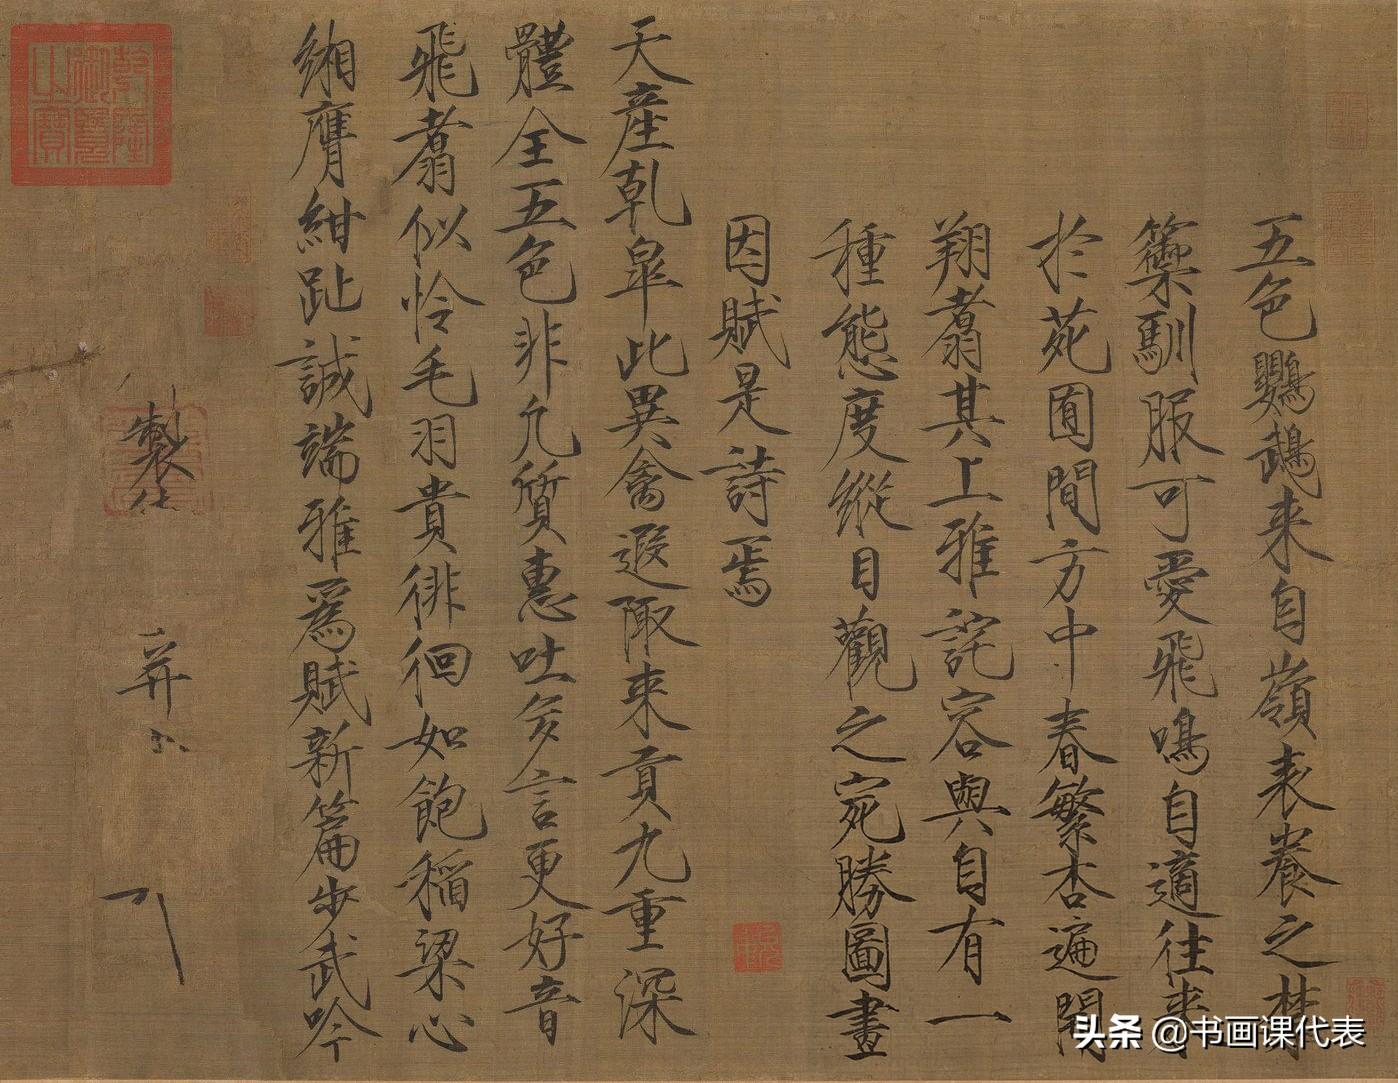 五色鸚鵡来自嶺表養之禁
籞馴服可愛飛鳴自適往来
於苑囿間方中春繁杏遍開
翔翥其上雅詫容與自有一
種態度縱目觀之宛勝圖畫
因賦是詩焉
天産乾皐此異禽遐陬来貢九重深
體全五色非凡質惠吐多言更好音
飛翥似怜毛羽貴徘徊如飽稲粱心
緗膺紺趾誠端雅爲賦新篇步武吟
製
并
乾隆御覽之寶
头条 @书画课代表